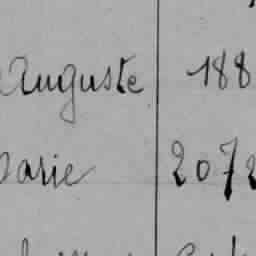 Auguste 188
Marie 2072